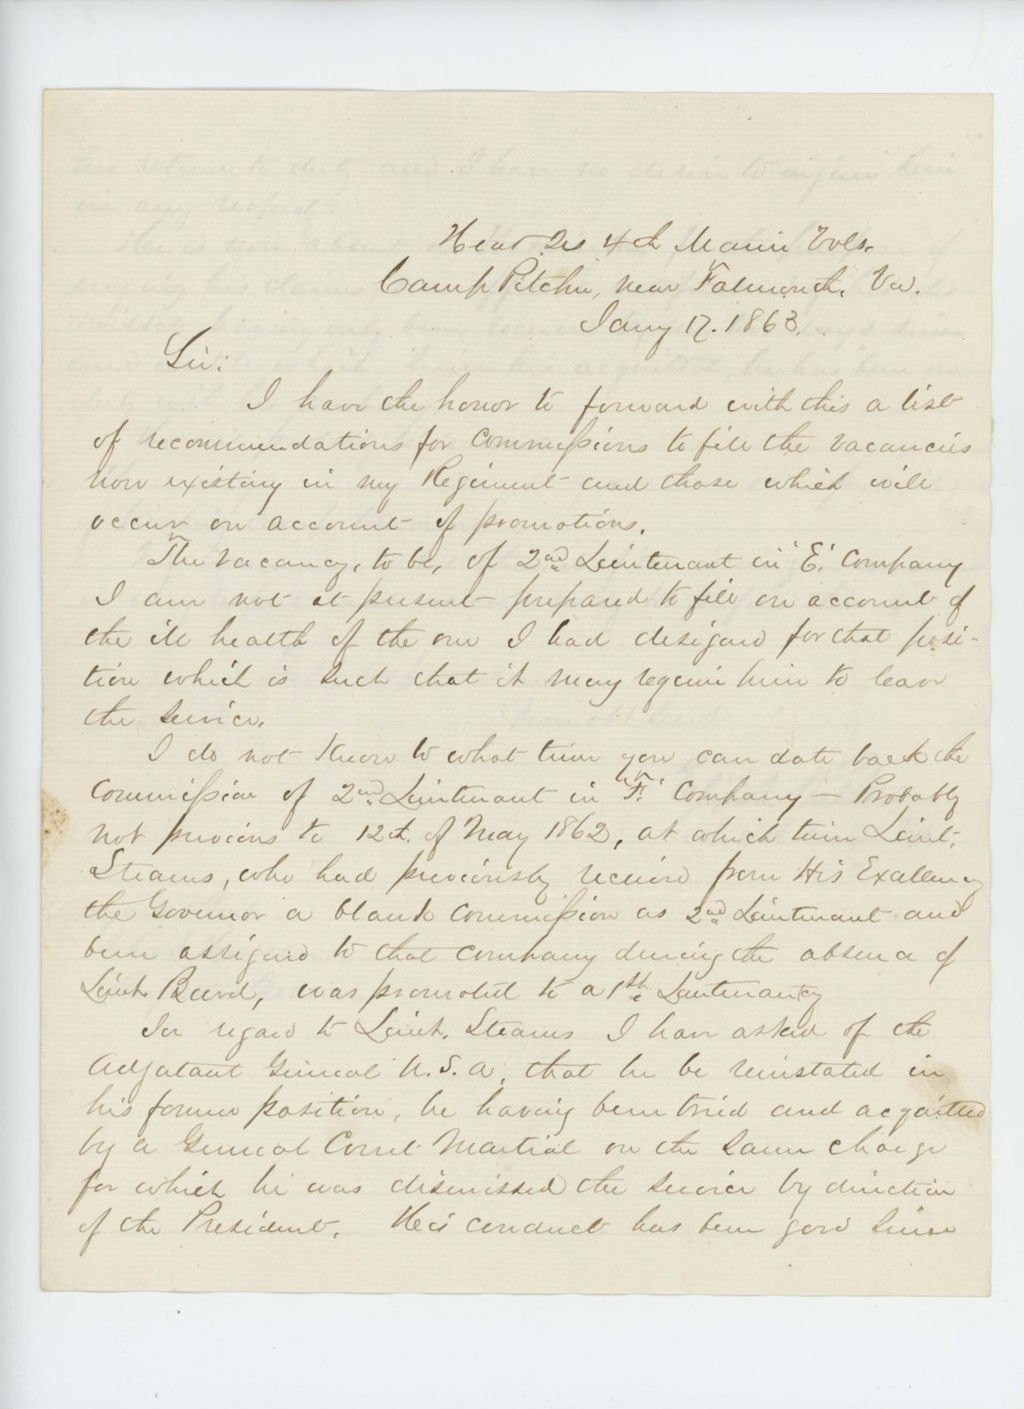 Head Qrs 4th Maine Vols.
Camp Pitcher, near Falmouth, Va.
Jany 17. 1863.
Sir:
I have the honor to forward with this a list
of recommendations for Commissions to fill the vacancies
now existing in my Regiment and those which will
occur on account of promotions.
The vacancy, to be, of 2nd Lieutenant in "E" Company
I am not at present prepared to fill on account of
the ill health of the one I had designed for that posi-
tion which is such that it may require him to leave
the service.
I do not know to what time you can date back the
Commission of 2nd Lieutenant in "F" Company — Probably
not previous to 12th of May 1862, at which time Lieut.
Stearns, who had previously received from His Excellency
the Governor a blank Commission as 2nd Lieutenant and
been assigned to that company during the absence of
Lieut. Beard, was promoted to a 1st Lieutenancy
In regard to Lieut. Stearns I have asked of the
Adjutant General U.S.A. that he be reinstated in
his former position, he having been tried and acquitted
by a General Court Martial on the same charge
for which he was dismissed the service by direction
of the President. His conduct has been good since